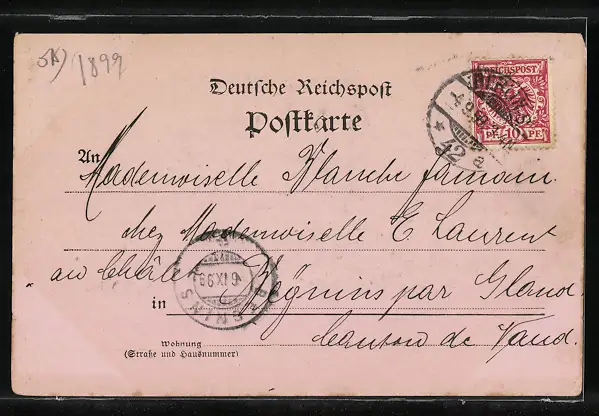 5K) 1899
Deutsche Reichspost
Postkarte
REICHSPOST
PF. 10 PF.
12 a
An Mademoiselle Blanche Jamain.
chez Mademoiselle E. Laurent
au Châlet
6 IX 99
BEGNINS
in Begnins par Gland.
Canton de Vaud.
Wohnung
(Straße und Hausnummer)